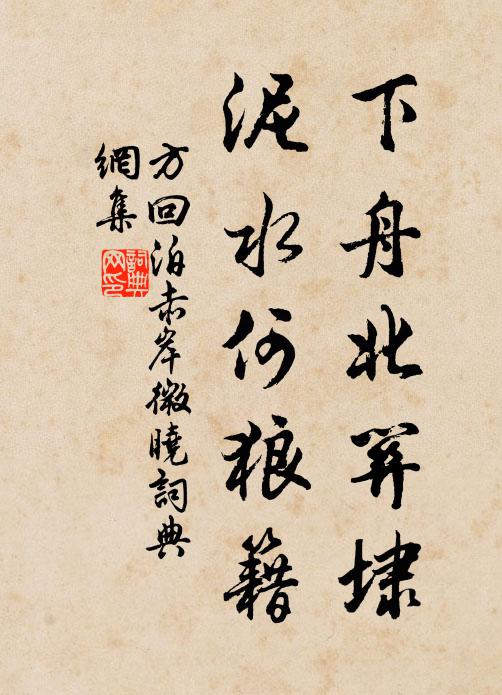 下舟北關埭
泥水何狼籍
方回泊赤岸微曉詞典
網集
詞典网印